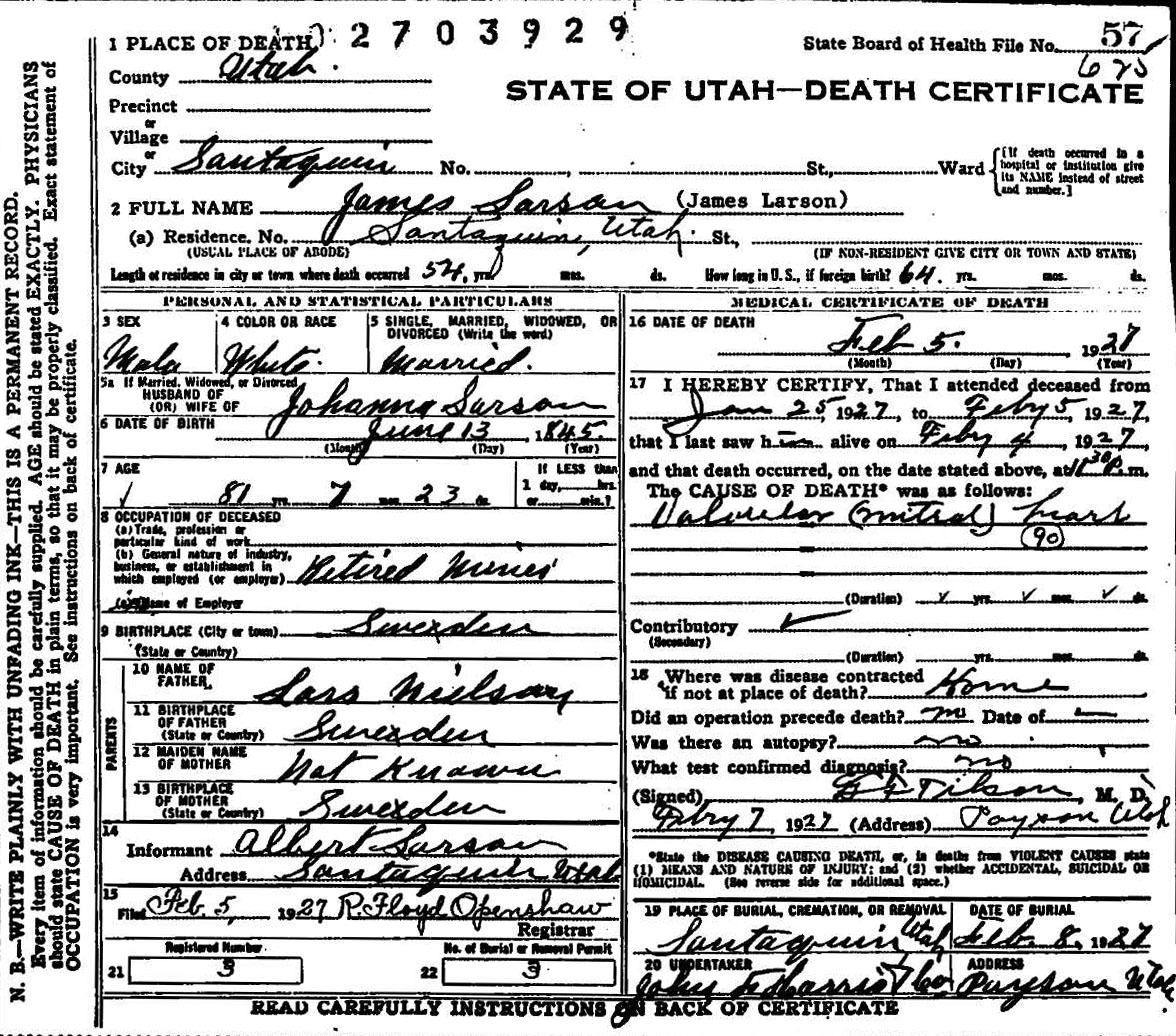 2703929
1 PLACE OF DEATH
State Board of Health File No. 57
625
County Utah.
STATE OF UTAH—DEATH CERTIFICATE
Precinct
or
Village
or
City Santaquin No. , St., Ward [If death occurred in a hospital or institution give its NAME instead of street and number.]
2 FULL NAME James Larson (James Larson)
(a) Residence. No. Santaquin, Utah. St.,
(USUAL PLACE OF ABODE) (IF NON-RESIDENT GIVE CITY OR TOWN AND STATE)
Length of residence in city or town where death occurred 54, yrs. mos. ds. How long in U. S., if foreign birth? 64. yrs. mos. ds.
PERSONAL AND STATISTICAL PARTICULARS
3 SEX 4 COLOR OR RACE 5 SINGLE, MARRIED, WIDOWED, OR DIVORCED (Write the word)
Male White. Married.
5a If Married, Widowed, or Divorced
HUSBAND OF
(OR) WIFE OF Johanna Larson
6 DATE OF BIRTH June 13, 1845.
(Month) (Day) (Year)
7 AGE If LESS than
1 day, hrs.
81 yrs. 7 mos. 23 ds. or min.?
8 OCCUPATION OF DECEASED
(a) Trade, profession or
particular kind of work
(b) General nature of industry,
business, or establishment in
which employed (or employer) Retired Miner
(c) Name of Employer
9 BIRTHPLACE (City or town) Sweden
(State or Country)
PARENTS
10 NAME OF
FATHER Lars Nielson
11 BIRTHPLACE
OF FATHER
(State or Country) Sweden
12 MAIDEN NAME
OF MOTHER Not Known
13 BIRTHPLACE
OF MOTHER
(State or Country) Sweden
14
Informant Albert Larson
Address Santaquin Utah
15
Filed Feb. 5, 1927 R. Floyd Openshaw
Registrar
Registered Number No. of Burial or Removal Permit
21 3 22 3
MEDICAL CERTIFICATE OF DEATH
16 DATE OF DEATH
Feb 5. 1927
(Month) (Day) (Year)
17 I HEREBY CERTIFY, That I attended deceased from
Jan 25, 1927, to Feby 5, 1927,
that I last saw him alive on Feby 4, 1927
and that death occurred, on the date stated above, at 11 30 P. m.
The CAUSE OF DEATH* was as follows:
Valvular (mitral) heart
90
(Duration) yrs. mos. ds.
Contributory
(Secondary)
(Duration) yrs. mos. ds.
18 Where was disease contracted
if not at place of death? Home
Did an operation precede death? no Date of
Was there an autopsy? no
What test confirmed diagnosis? no
(Signed) Tilson, M. D.
Febry 7 1927 (Address) Payson Utah
*State the DISEASE CAUSING DEATH, or, in deaths from VIOLENT CAUSES state
(1) MEANS AND NATURE OF INJURY; and (2) whether ACCIDENTAL, SUICIDAL OR
HOMICIDAL. (See reverse side for additional space.)
19 PLACE OF BURIAL, CREMATION, OR REMOVAL DATE OF BURIAL
Santaquin Utah Feb. 8, 1927
20 UNDERTAKER ADDRESS
John F Harris & Co Payson Utah
READ CAREFULLY INSTRUCTIONS ON BACK OF CERTIFICATE
N. B.—WRITE PLAINLY WITH UNFADING INK—THIS IS A PERMANENT RECORD.
Every item of information should be carefully supplied. AGE should be stated EXACTLY. PHYSICIANS
should state CAUSE OF DEATH in plain terms, so that it may be properly classified. Exact statement of
OCCUPATION is very important. See instructions on back of certificate.